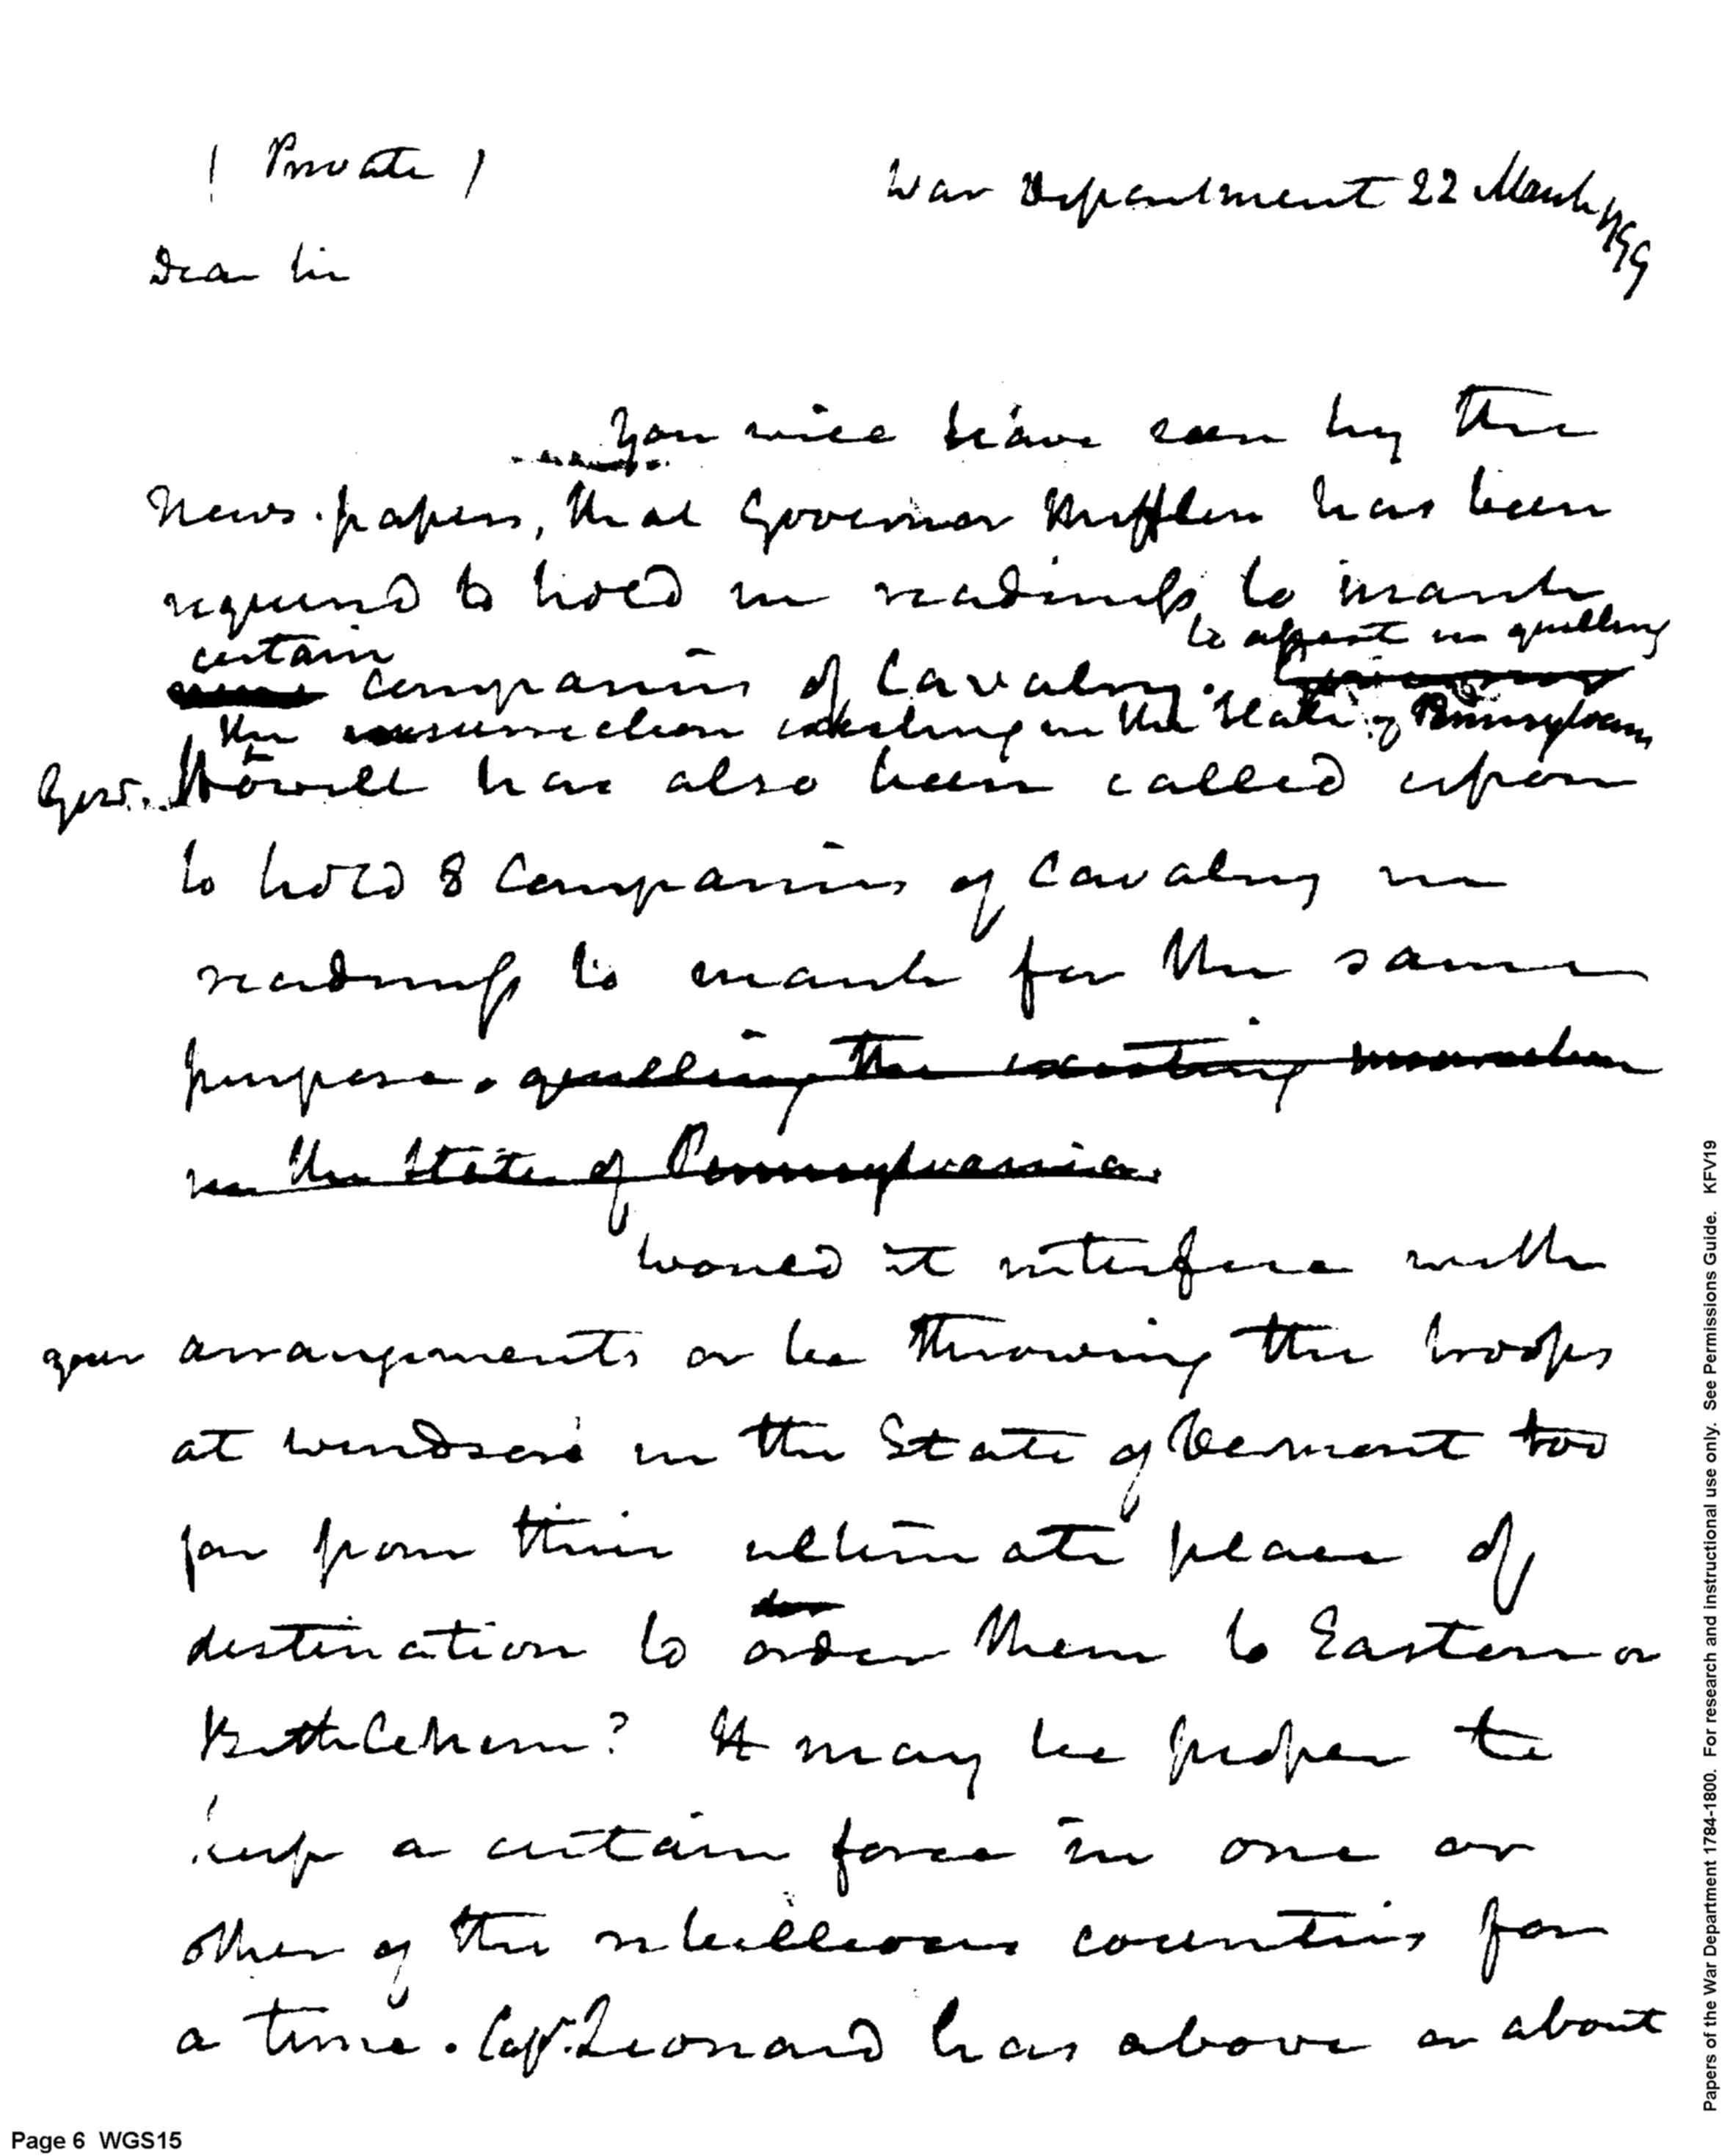 ( Private )
War Department 22 March 1799
Dear Sir
You will have seen by the
News-papers, that Governor Mifflin has been
required to hold in readiness to march
to assist in quelling
certain
companies of Cavalry.
the insurrection existing in the State of Pennsylvan
Gov.r Howell has also been called upon
to hold 8 Companies of Cavalry in
readiness to march for the same
purpose. quelling the existing insurrection
in the State of Pennsylvania.
Would it interfere with
your arrangements or be throwing the troops
at Windsor in the State of Vermont too
far from their ultimate place of
destination to order them to Eastern or
Bethlehem? It may be proper to
keep a certain force in one or
other of the rebellious counties for
a time. Capt. Leonard has above or about
Page 6 WGS15
Papers of the War Department 1784-1800. For research and instructional use only. See Permissions Guide. KFV19